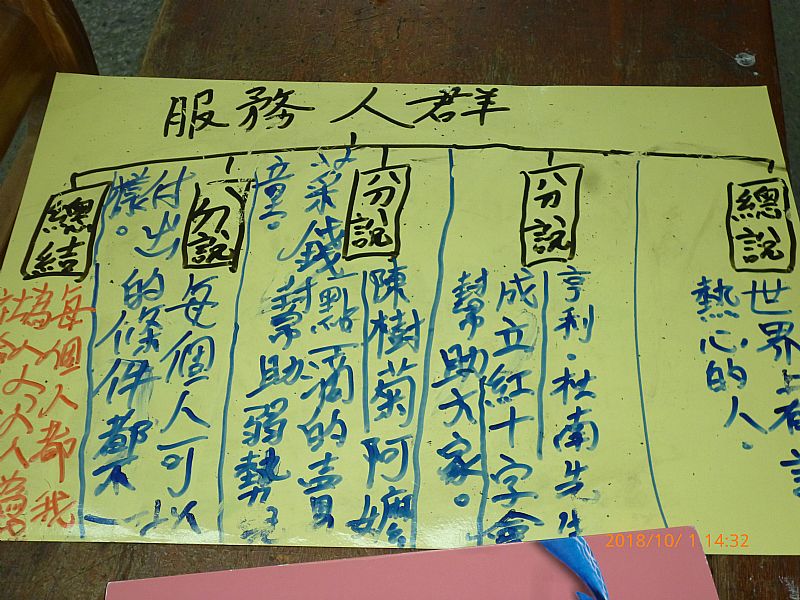 服務人群
總說
世界上有
熱心的人。
分說
亨利·杜南先生
成立紅十字會
幫助大家。
分說
陳樹菊阿嬤
菜錢一點一滴的賣
幫助弱勢
童。
分說
每個人可以
付出的條件都不一
樣。
總結
每個人都我
為人人人人為
2018/10/ 1 14:32